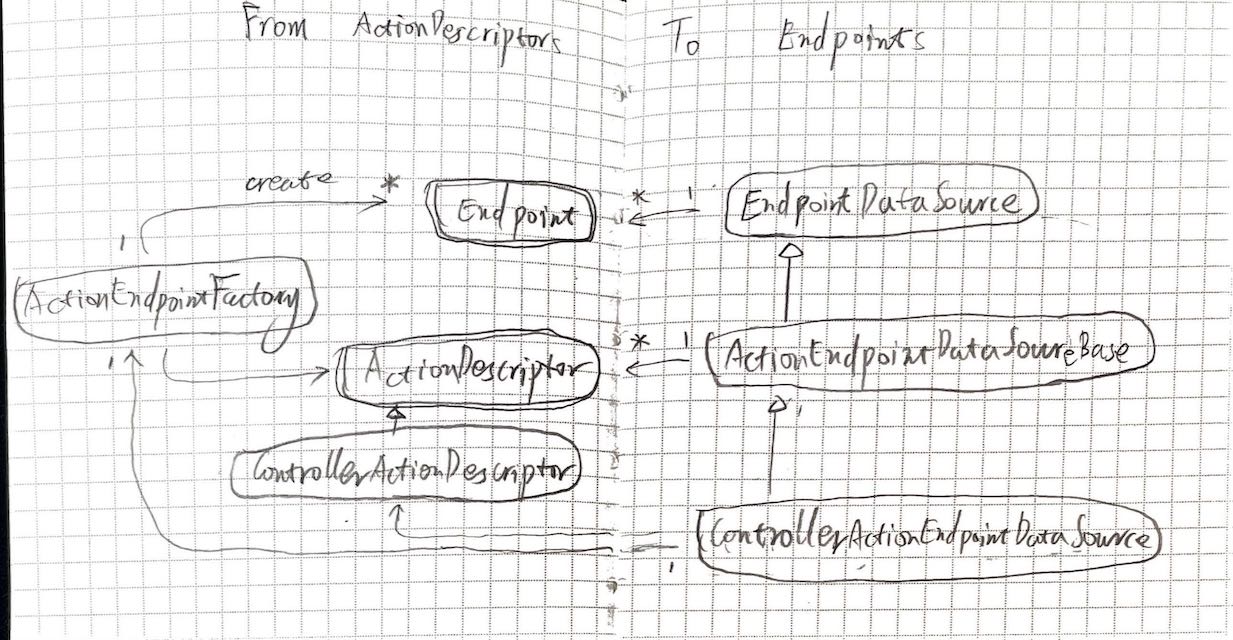 From ActionDescriptors To Endpoints
create * Endpoint * 1 EndpointDataSource
1
ActionEndpointFactory
1 ActionDescriptor * 1 ActionEndpointDataSoureBase
ControllerActionDescriptor 1
ControllerActionEndpointDataSource
1